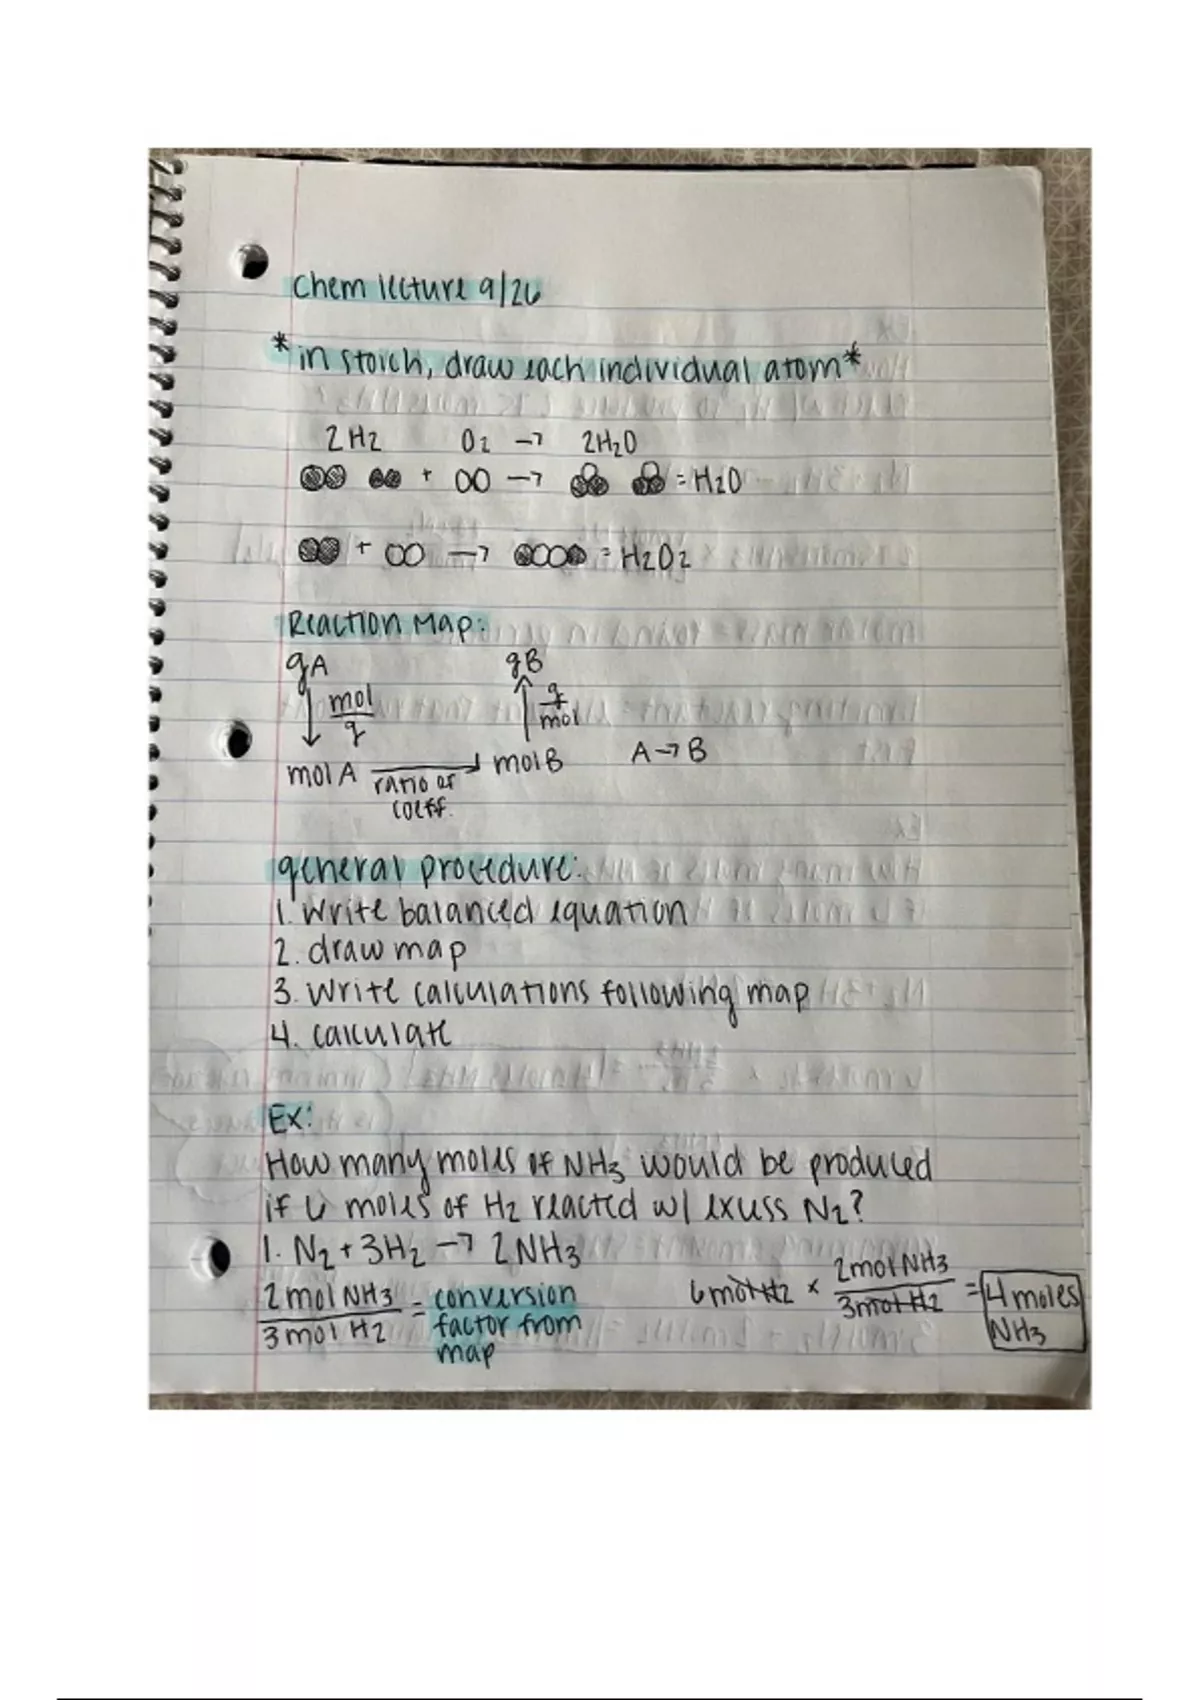 Chem lecture 9/26
*in stoich, draw each individual atom*
2H2 O2 → 2H2O
+ → = H2O
+ → = H2O2
Reaction Map:
gA gB
mol/g g/mol
mol A → mol B A → B
ratio of
coeff.
general procedure:
1. Write balanced equation
2. draw map
3. Write calculations following map
4. calculate
Ex:
How many moles of NH3 would be produced
if 6 moles of H2 reacted w/ excess N2?
1. N2 + 3H2 → 2NH3
2 mol NH3 / 3 mol H2 = conversion factor from map
6 mol H2 × 2 mol NH3 / 3 mol H2 = 4 moles NH3